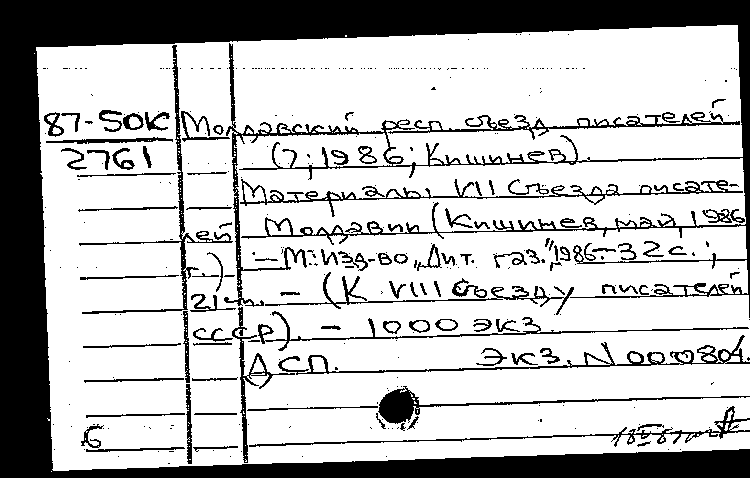 87-50К Молдавский респ. съезд писателей
2761 (7; 1986; Кишинев).
Материалы VII Съезда писате-
лей Молдавии (Кишинев, май, 1986
г.) – М.: Изд-во „Лит. газ.", 1986 – 32 с.;
21 см. – (К VIII съезду писателей
СССР). – 1000 экз.
ДСП. Экз. N 000804.
6